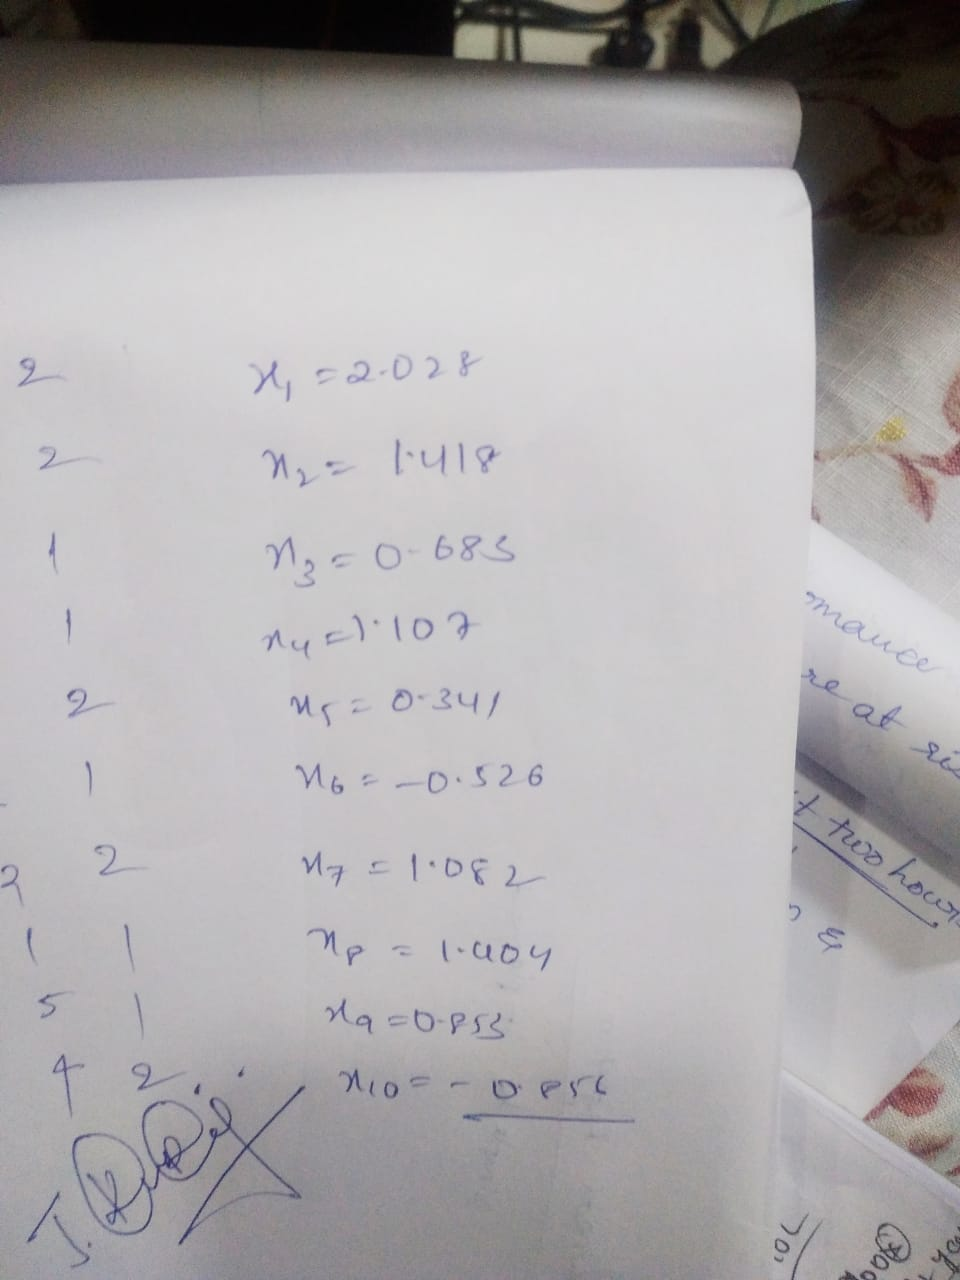 2 x₁ = 2.028
2 x₂ = 1.418
1 x₃ = 0.683
1 x₄ = 1.107
2 x₅ = 0.341
1 x₆ = -0.526
2 2 x₇ = 1.082
1 1 x₈ = 1.404
5 1 x₉ = 0.853
4 2 x₁₀ = - 0.856
omance
re at
t two hours
&